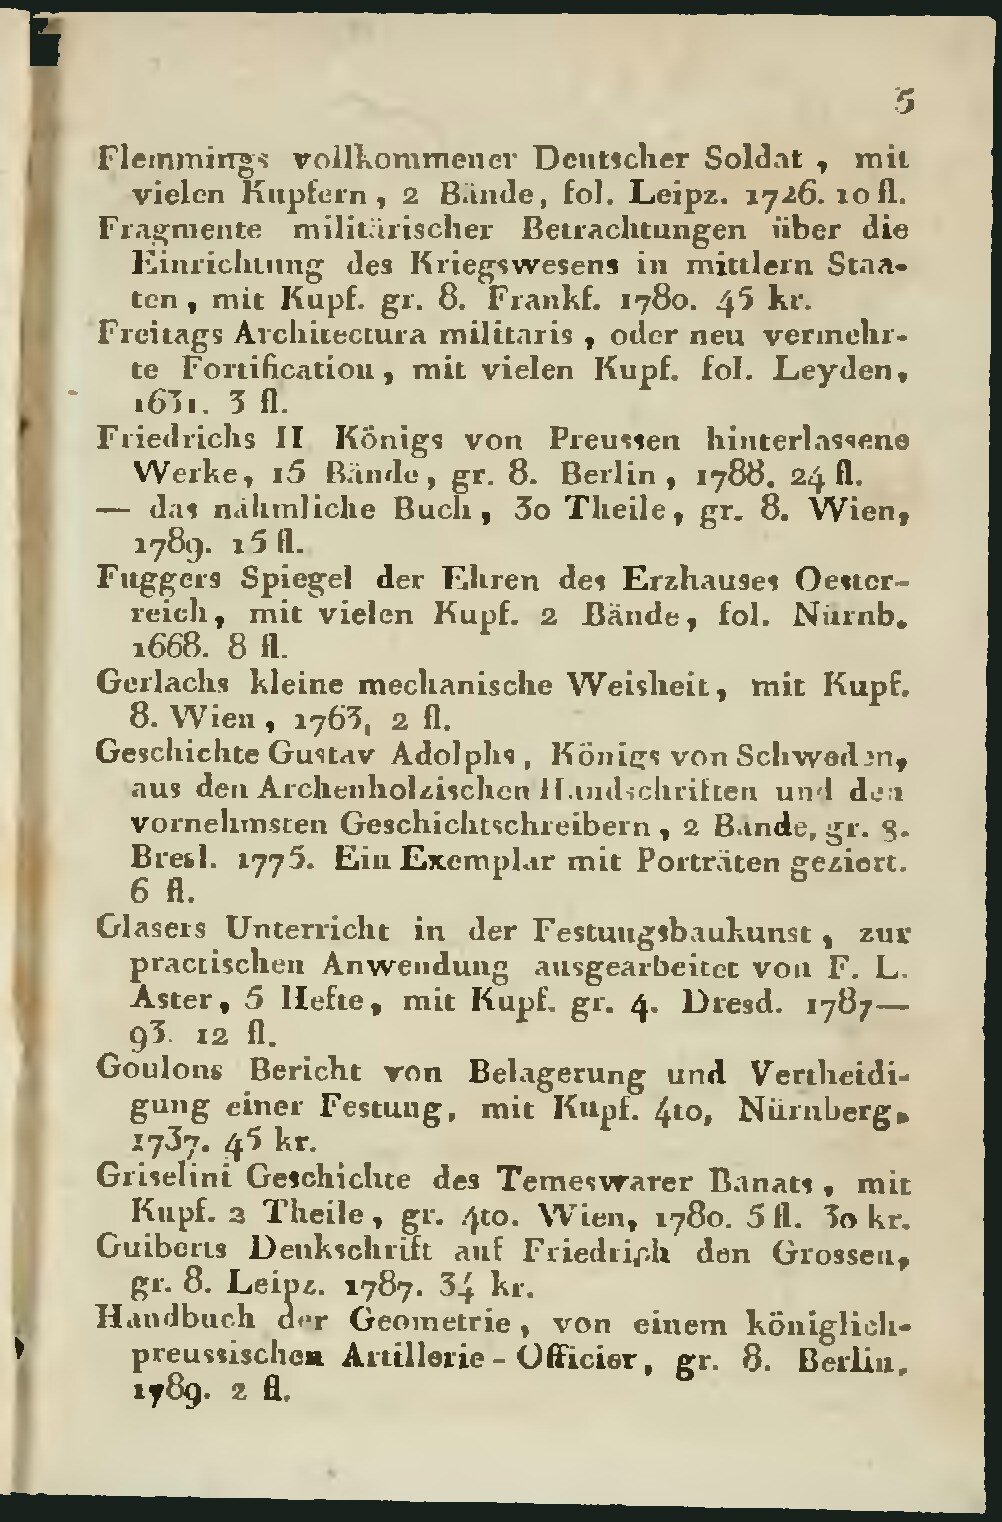 5
Flemmings vollkommener Deutscher Soldat, mit
vielen Kupfern, 2 Bände, fol. Leipz. 1726. 10 fl.
Fragmente militärischer Betrachtungen über die
Einrichtung des Kriegswesens in mittlern Staa-
ten, mit Kupf. gr. 8. Frankf. 1780. 45 kr.
Freitags Architectura militaris, oder neu vermehr-
te Fortification, mit vielen Kupf. fol. Leyden,
1631. 3 fl.
Friedrichs II Königs von Preussen hinterlassene
Werke, 15 Bände, gr. 8. Berlin, 1788. 24 fl.
— das nähmliche Buch, 30 Theile, gr. 8. Wien,
1789. 15 fl.
Fuggers Spiegel der Ehren des Erzhauses Oester-
reich, mit vielen Kupf. 2 Bände, fol. Nürnb.
1668. 8 fl.
Gerlachs kleine mechanische Weisheit, mit Kupf.
8. Wien, 1763, 2 fl.
Geschichte Gustav Adolphs, Königs von Schweden,
aus den Archenholzischen Handschriften und den
vornehmsten Geschichtschreibern, 2 Bände, gr. 8.
Bresl. 1775. Ein Exemplar mit Porträten geziert.
6 fl.
Glasers Unterricht in der Festungsbaukunst, zur
practischen Anwendung ausgearbeitet von F. L.
Aster, 5 Hefte, mit Kupf. gr. 4. Dresd. 1787—
93. 12 fl.
Goulons Bericht von Belagerung und Vertheidi-
gung einer Festung, mit Kupf. 4to, Nürnberg.
1737. 45 kr.
Griselini Geschichte des Temeswarer Banats, mit
Kupf. 2 Theile, gr. 4to. Wien, 1780. 5 fl. 30 kr.
Guiberts Denkschrift auf Friedrich den Grossen,
gr. 8. Leipz. 1787. 34 kr.
Handbuch der Geometrie, von einem königlich-
preussischen Artillerie-Officier, gr. 8. Berlin,
1789. 2 fl.